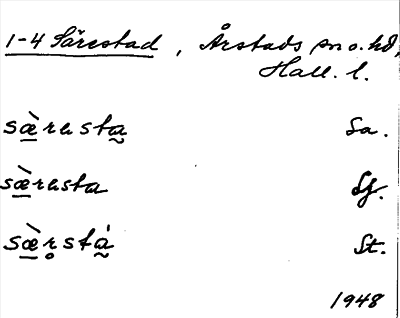 1-4 Särestad, Årstads sn o. hd,
Hall. l.
sæ̀rɐsta Sa.
sæ̀rɐsta Sf.
sæ̀r̥stá St.
1948